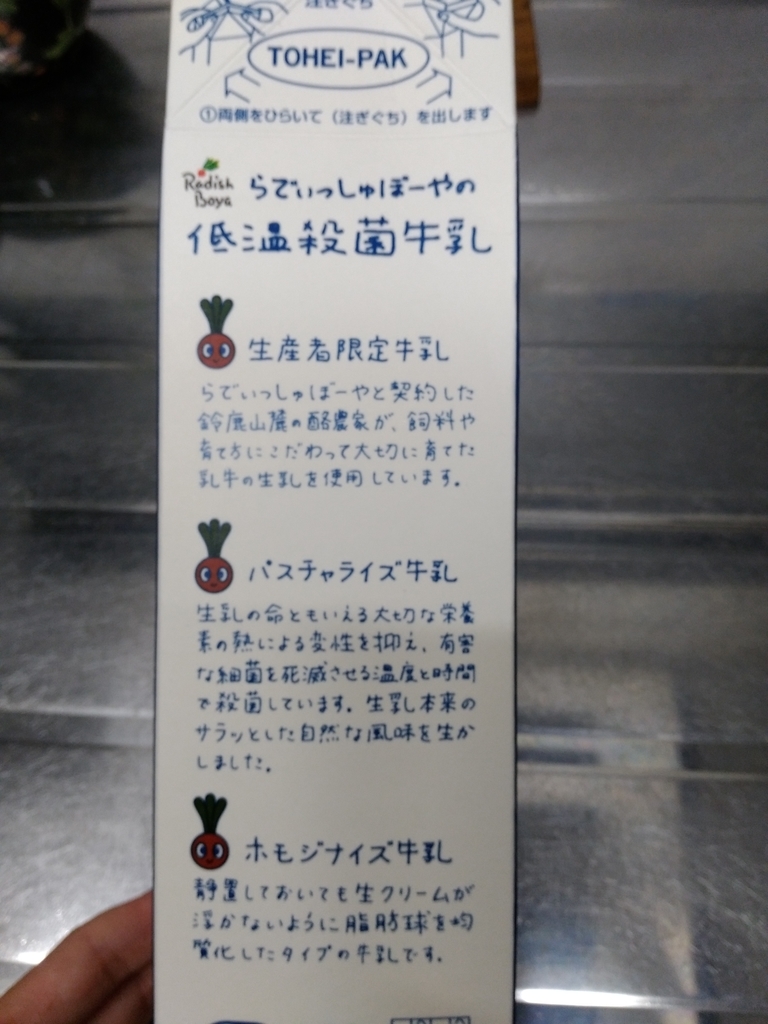 注ぎぐち
TOHEI-PAK
①両側をひらいて（注ぎぐち）を出します
Radish
Boya
らでぃっしゅぼーやの
低温殺菌牛乳
生産者限定牛乳
らでぃっしゅぼーやと契約した
鈴鹿山麓の酪農家が、飼料や
育て方にこだわって大切に育てた
乳牛の生乳を使用しています。
パスチャライズ牛乳
生乳の命ともいえる大切な栄養
素の熱による変性を抑え、有害
な細菌を死滅させる温度と時間
で殺菌しています。生乳本来の
サラッとした自然な風味を生か
しました。
ホモジナイズ牛乳
静置しておいても生クリームが
浮かないように脂肪球を均
質化したタイプの牛乳です。